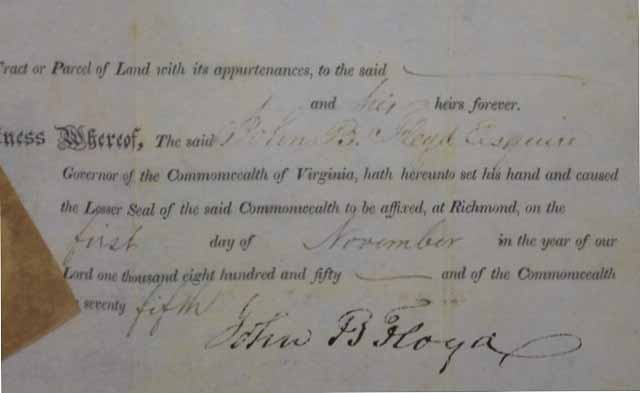 Tract or Parcel of Land with its appurtenances, to the said
and his heirs forever.
ness Whereof, The said John B. Floyd Esquire
Governor of the Commonwealth of Virginia, hath hereunto set his hand and caused
the Lesser Seal of the said Commonwealth to be affixed, at Richmond, on the
first day of November in the year of our
Lord one thousand eight hundred and fifty and of the Commonwealth
seventy fifth
John B Floyd